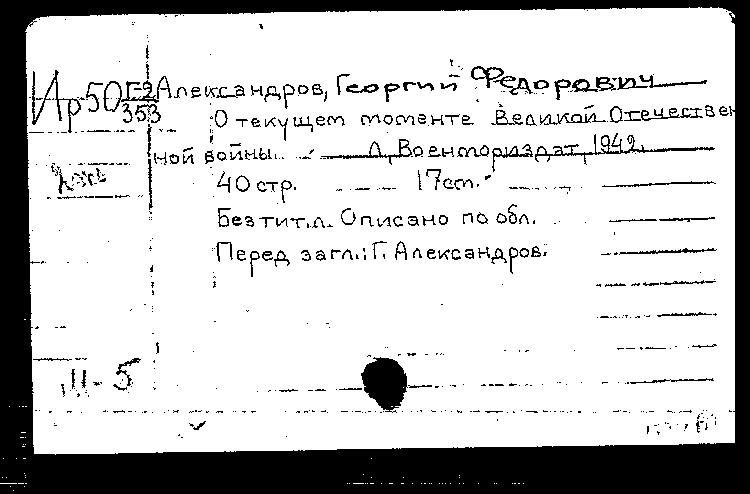 Ир50 Г-2 Александров, Георгий Федорович
353
О текущем моменте Великой Отечествен
ной войны. - Л, Военмориздат, 1942.
40 стр. — 17 см.
Без тит.л. Описано по обл.
Перед загл.: Г. Александров.
III - 5